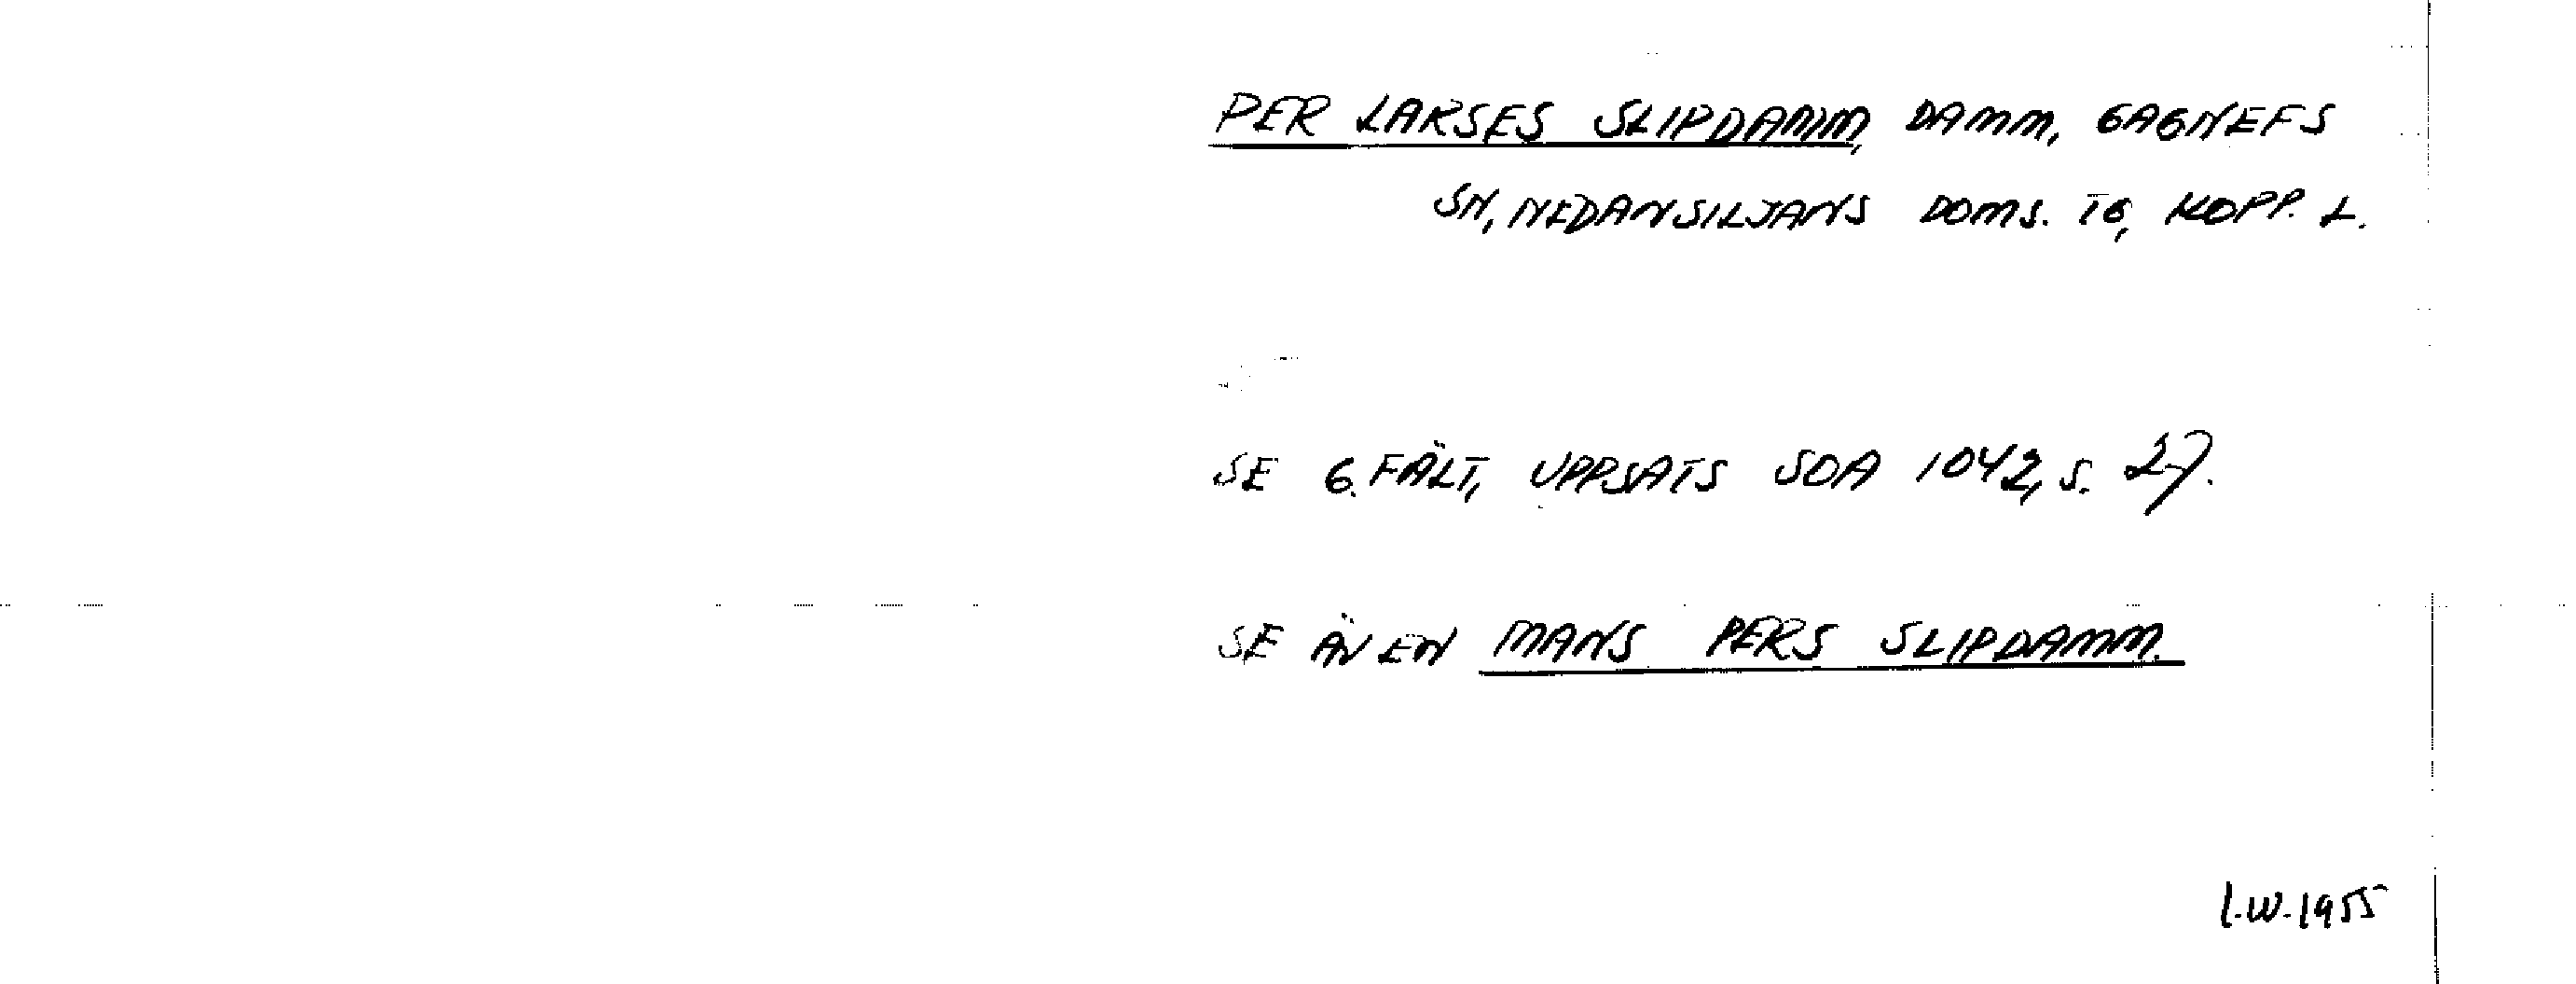 PER LARSES SLIPDAMM, DAMM, GAGNEFS
SN, NEDANSILJANS DOMS. TG, KOPP. L.
SE G. FÄLT, UPPSATS SOA 1042, S. 27.
SE ÄVEN MANS PERS SLIPDAMM.
I.W. 1955